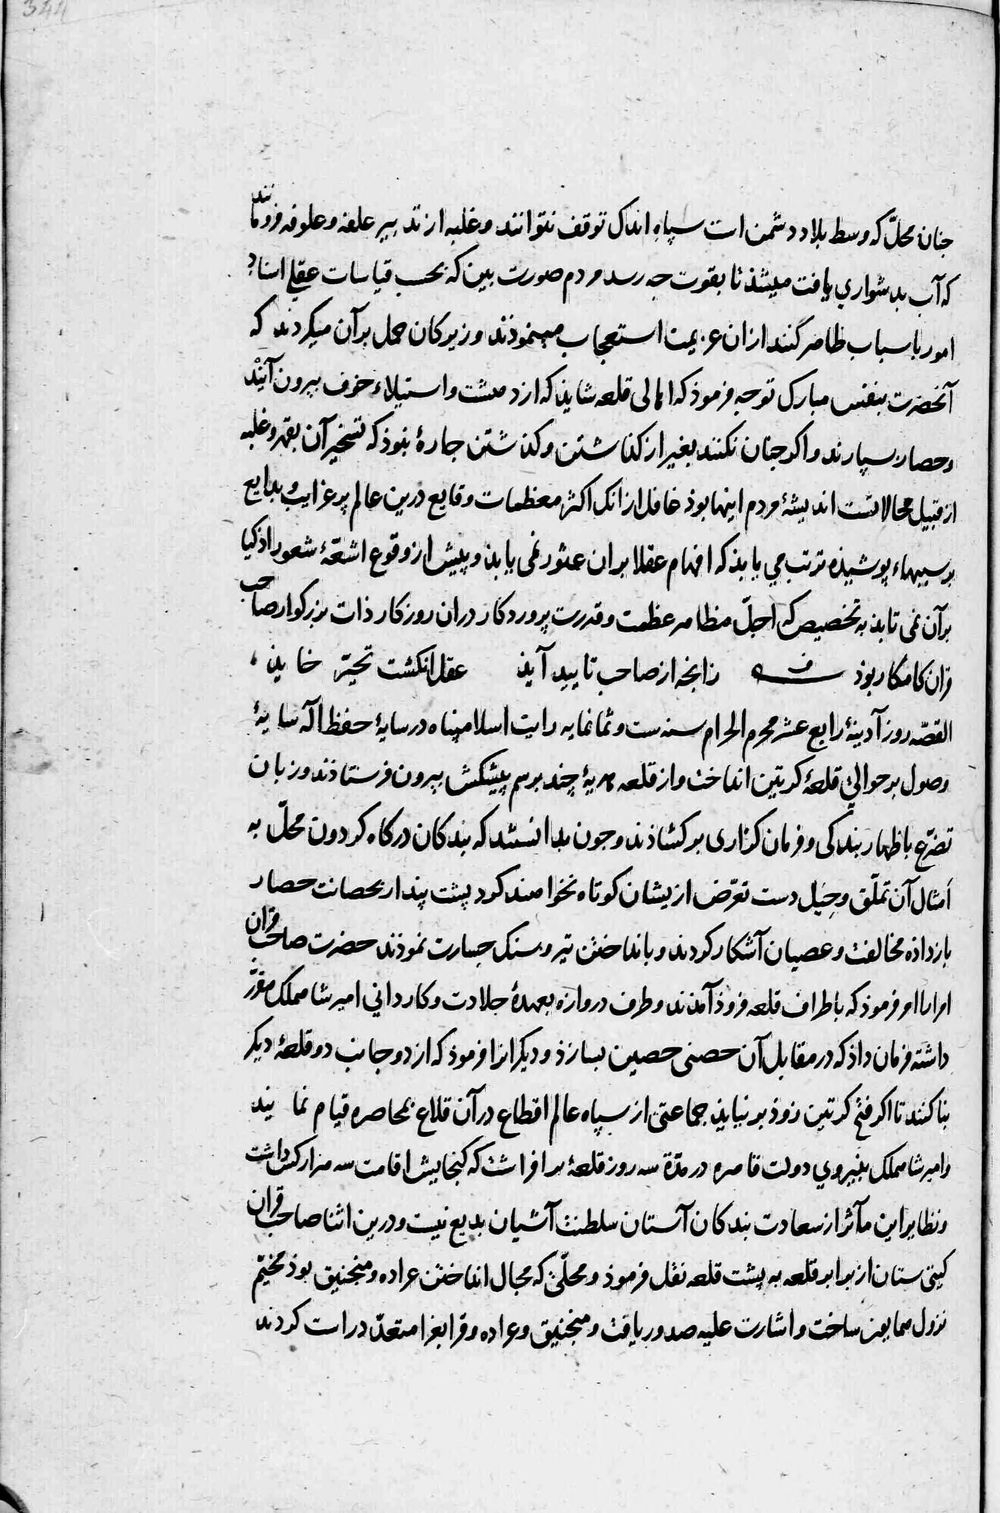 344
جنان محلّ که وسط بلاد دشمن است سپاه اندک توقف نتوانند و غلبه از تدبیر علفه و علوفه فرومانند
که آب بدشواری یافت میشد تا بقوت جه رسد مردم صورت بین که بحسب قیاسات عقلی اسناد
امور باسباب ظاهر کنند ازان عزیمت استعجاب مینموذند و زیرکان حمل برآن میکردند که
آنحضرت بنفس مبارک توجه فرموذ که اهالی قلعه شاید که از دهشت و استیلاء خوف بیرون آیند
و حصار بسپارند و اکر جنان نکنند بغیر از کذاشتن و کذشتن جارهٔ نبوذ که تسخیر آن بقهر و غلبه
از قبیل محالاتست اندیشهٔ مردم اینها بوذ غافل ازانک اکثر معظمات وقایع درین عالم پر غرایب و بدایع
بر سببهاء پوشیذه ترتب می یابذ که افهام عقلا بران عثور نمی یابذ و پیش از وقوع اشعّهٔ شعور اذکیا
برآن نمی تابذ به تخصیص که اجلّ مظاهر عظمت و قدرت پروردکار دران روزکار ذات بزرکوار صاحب
قران کامکار بوذ زانچه از صاحب تایید آید عقل انکشت تحیّر خاید
القصّه روز آدینهٔ رابع عشر محرم الحرام سنه ست و ثمانمایه رایت اسلام پناه در سایهٔ حفظ اله سایهٔ
وصول بر حوالی قلعهٔ کرتین انداخت و از قلعه هدیهٔ چند برسم پیشکش بیرون فرستاذند و زبان
تضرّع باظهار بندکی و فرمان کزاری برکشاذند و جون بدانستند که بندکان درکاه کردون محلّ به
اَمثال آن تملّق و حِیَل دست تعرّض ازیشان کوتاه نخواهند کرد پشت پندار بحصانت حصار
بازداذه مخالفت و عصیان آشکار کردند و بانداختن تیر و سنک جسارت نموذند حضرت صاحب قران
امرا را امر فرموذ که باطراف قلعه فروذ آمذند و طرف دروازه بعهدهٔ جلادت و کاردانی امیر شاهملک مقرّر
داشته فرمان داذ که در مقابل آن حصنی حصین بسازذ و دیکرانرا فرموذ که از دو جانب دو قلعهٔ دیکر
بنا کنند تا اکر فتح کرتین زوذ بر نیاید جماعتی از سپاه عالم اقطاع در آن قلاع بمحاصره قیام نمایند
و امیر شاهملک بنیروی دولت قاهره در مدّة سه روز قلعهٔ برافراشت که کنجایش اقامت سه هزار کس داشت
و نظایر این مآثر از سعادت بندکان آستان سلطنت آشیان بدیع نیست و درین اثنا صاحب قران
کیتی ستان از برابر قلعه به پشت قلعه نقل فرموذ و محلّی که مجال انداختن عراده و منجنیق بوذ مخیّم
نزول همایون ساخت و اشارت علیه صدور یافت و منجنیق و عراده و قرابغرا متعدّد راست کردند